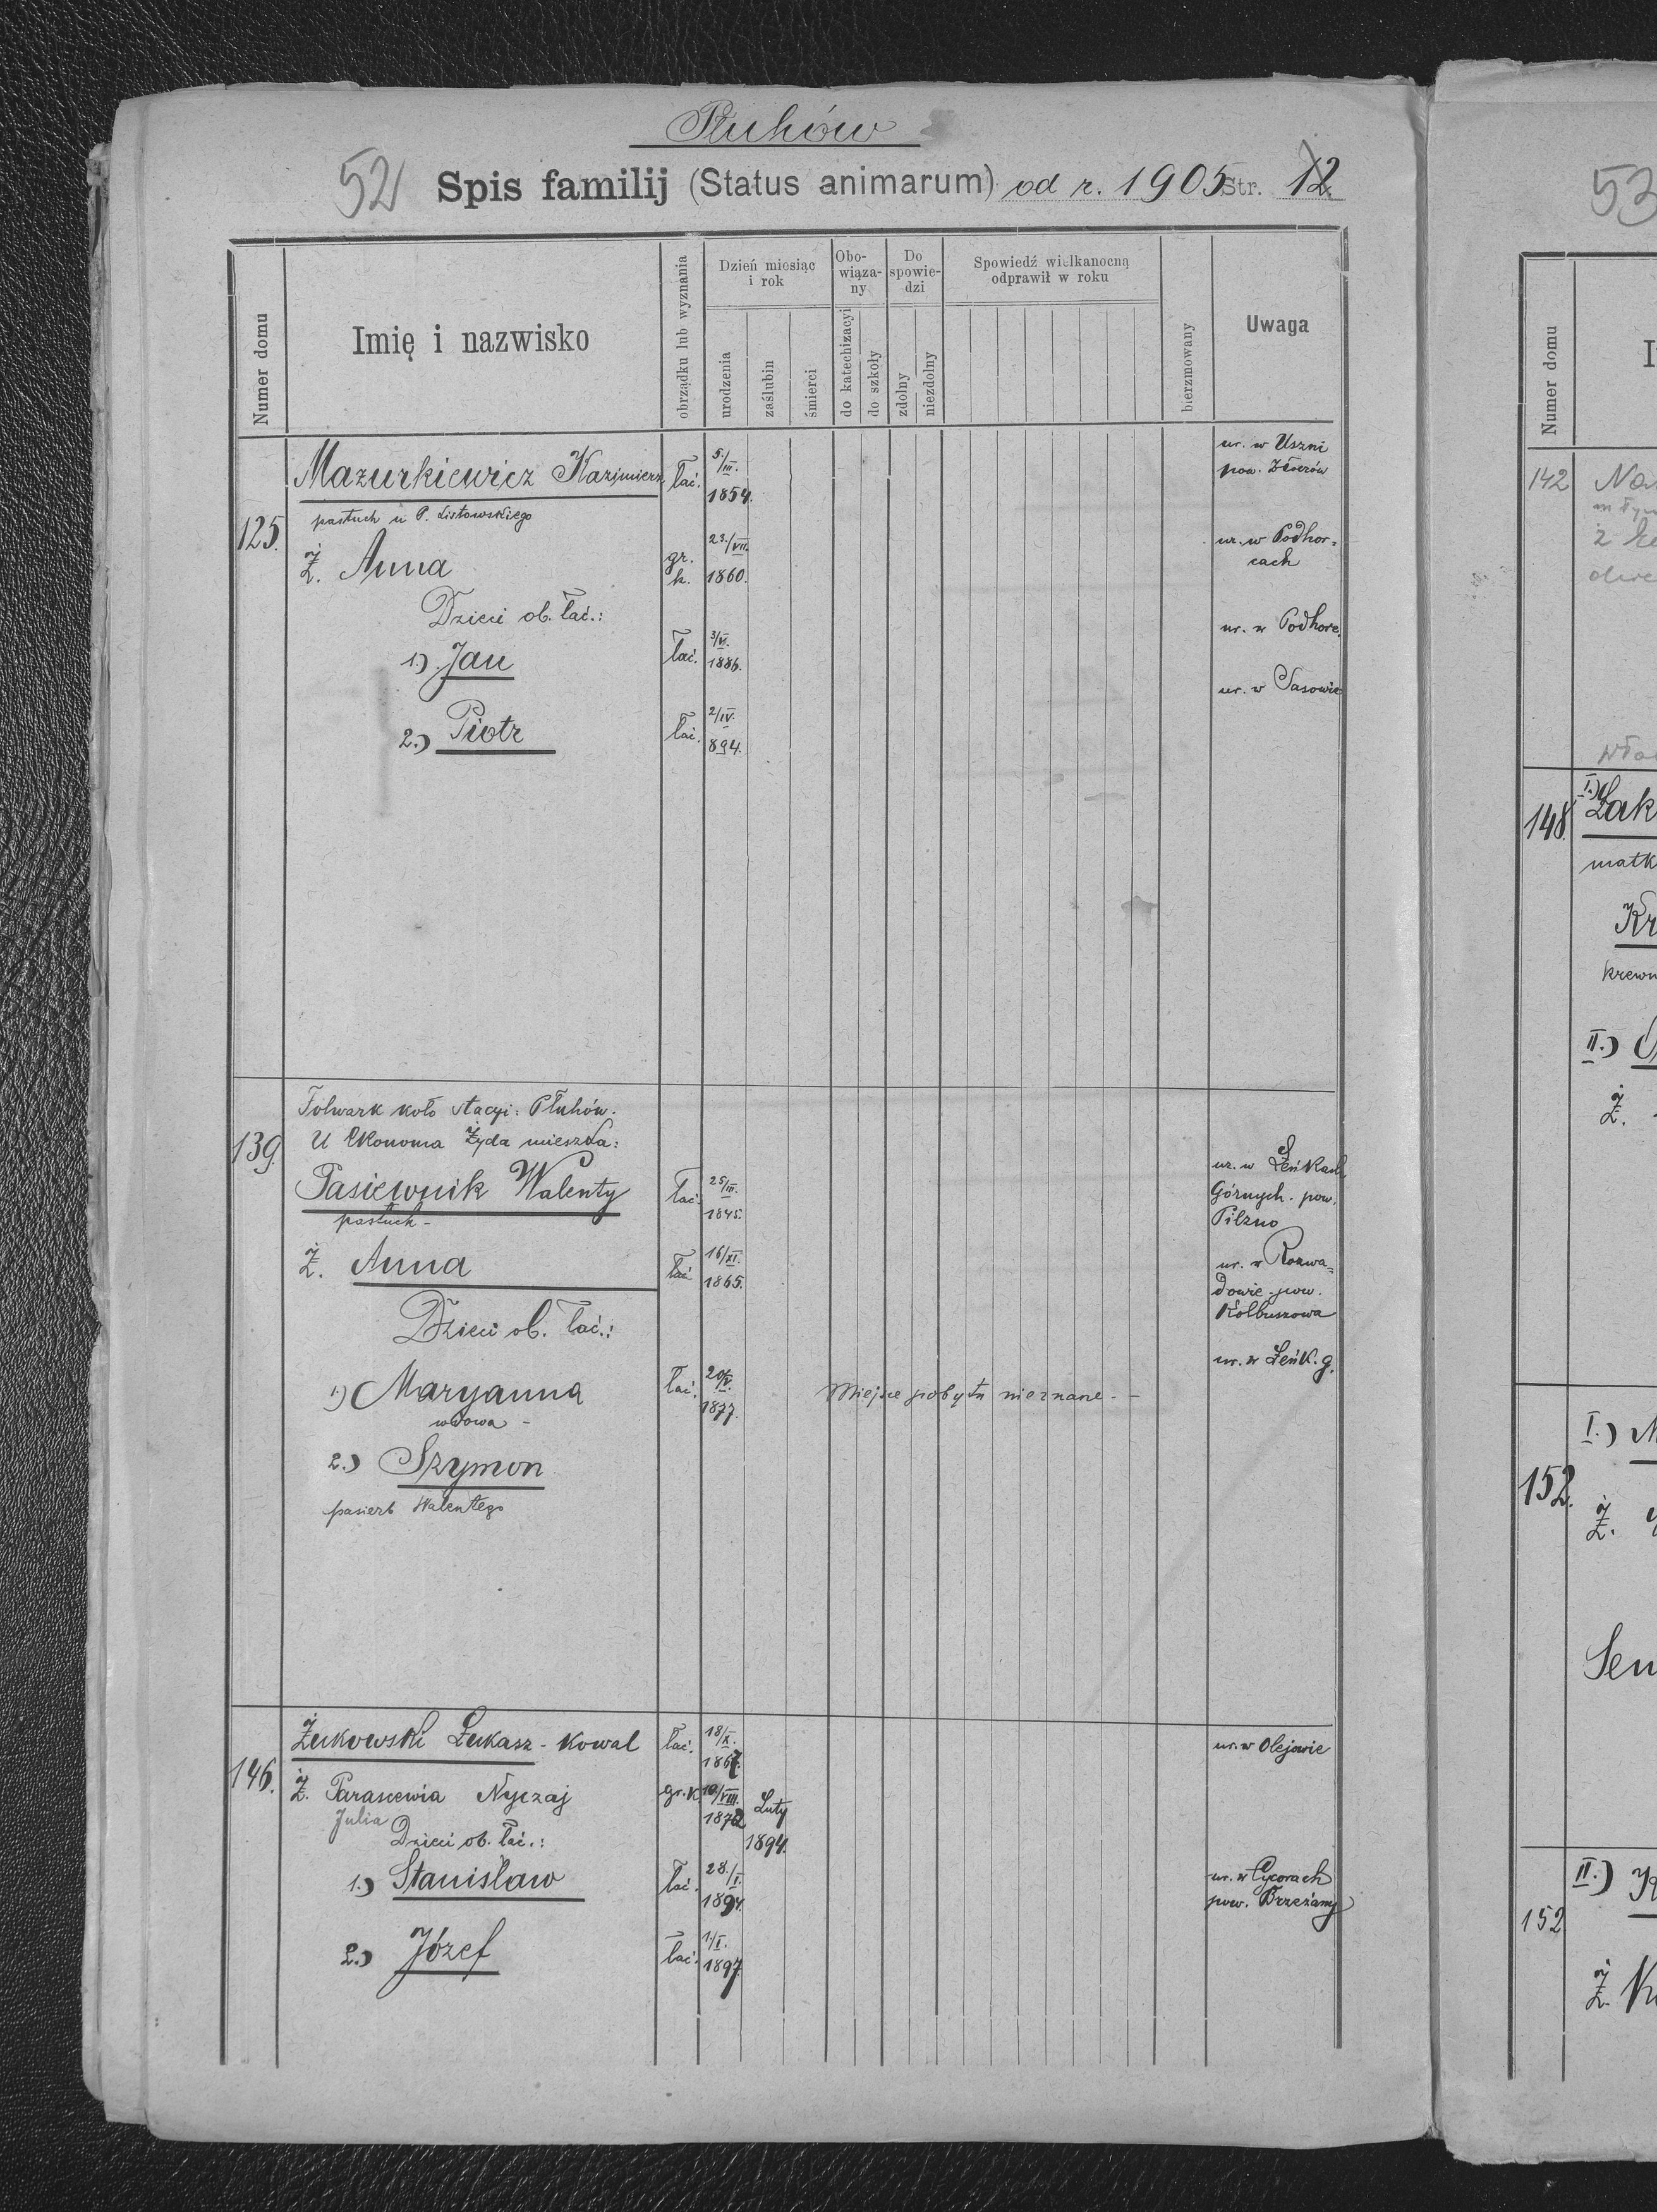 Płuhów
52 Spis familij (Status animarum) od r. 1905 Str. 12
Numer domu
Imię i nazwisko
obrządku lub wyznania
Dzień miesiąc i rok
urodzenia
zaślubin
śmierci
Obo-wiąza-ny
do katechizacyi
do szkoły
Do spowie-dzi
zdolny
niezdolny
Spowiedź wielkanocną odprawił w roku
bierzmowany
Uwaga
125. Mazurkiewicz Kazimierz łać. 5/III. 1854. ur. w Uszni pow. Złoczów
pastuch u P. Listowskiego
Ż. Anna gr. k. 23/VII. 1860. ur. w Podhor=cach
Dzieci ob. łać.:
1.) Jan łać. 3/VI. 1886. ur. w Podhorc.
2.) Piotr łać. 2/IV. 894. ur. w Sasowie
139. Folwark koło stacyi: Płuhów.
U Ekonoma Żyda mieszka:
Pasiewnik Walenty łać. 25/III. 1845. ur. w Łeńkach Górnych. pow. Pilzno
pastuch -
Ż. Anna łać 16/XI. 1865. ur. w Rozwa=dowie pow. Kolbuszowa
Dzieci ob. łać.:
1.) Maryanna łać. 20/V. 1877. Miejsce pobytu nieznane. - ur. w Łeńk. g.
wdowa -
2.) Szymon
pasierb Walentego
146. Żukowski Łukasz - kowal łać. 18/X. 1867. ur. w Olejowie
Ż. Parascewia Nyczaj gr. k. 10/VIII. 1872 Luty 1894.
Julia
Dzieci ob. łać.:
1.) Stanisław łać. 28./I. 1894. ur. w Cycorach pow. Brzeżany
2.) Józef łać. 1/I. 1897
53
Numer domu
142
148.
matk
krewn
II.)
Ż.
I.)
152.
Ż.
II.)
152
Ż.